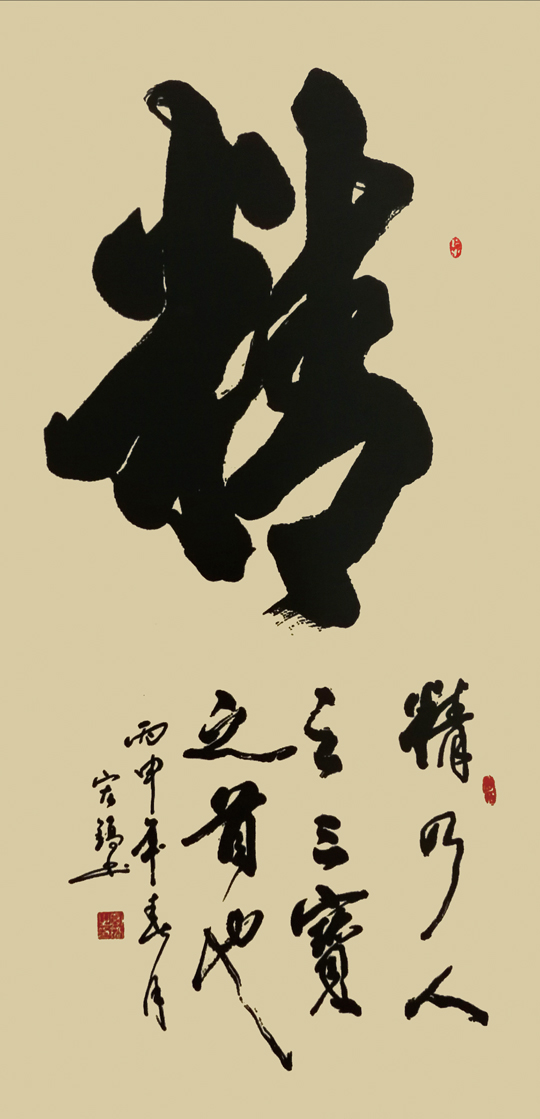 精
精乃人
之三寶
之首也
丙申年春月
书